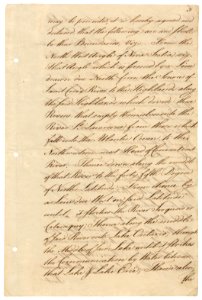 may be prevented, it is hereby agreed and
declared that the following are & shall
be their Boundaries, viz. From the
North West Angle of Nova Scotia, viz.
That Angle which is formed by a Line
drawn due North from the Source of
Saint Croix River to the Highlands along
the said Highlands which divide those
Rivers that empty themselves into the
River St. Lawrence from those which
fall into the Atlantic Ocean to the
Northwestern-most Head of Connecticut
River. Thence down along the middle
of that River to the forty fifth Degree
of North Latitude. From thence by
a Line due West on said Latitude
until it strikes the River Iroquois or
Cataraquy. Thence along the middle
of said River into Lake Ontario. through
the Middle of said Lake until it strikes
the Communication by Water between
that Lake & Lake Erie. Thence along
the